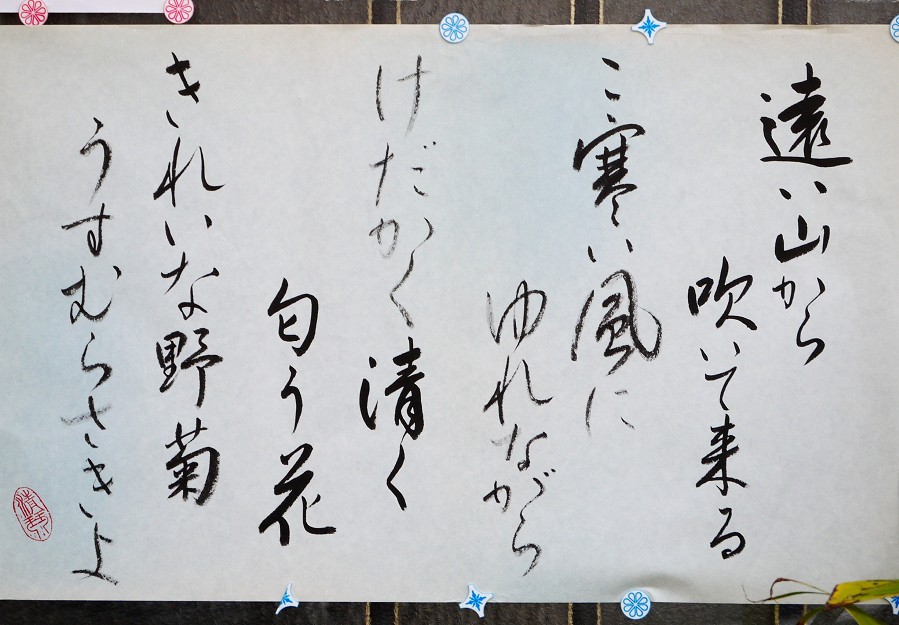 遠い山から
吹いて来る
こ寒い風に
ゆれながら
けだかく清く
匂う花
きれいな野菊
うすむらさきよ